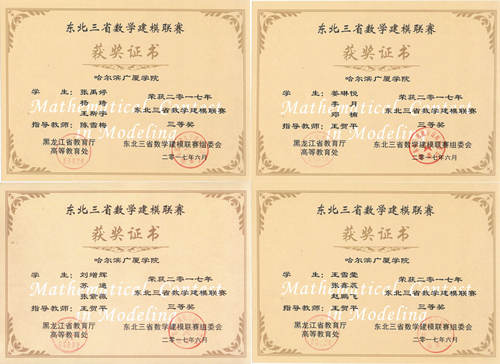 东北三省数学建模联赛
获奖证书
哈尔滨广厦学院
学 生：张禹婷 荣获二〇一七年
东北三省数学建模联赛
王斯宇 三等奖
指导教师：陈雪梅
Mathematical Contest
in Modeling
黑龙江省教育厅
高等教育处
东北三省数学建模联赛组委会
二〇一七年六月
东北三省数学建模联赛
获奖证书
哈尔滨广厦学院
学 生：姜琳悦 荣获二〇一七年
东北三省数学建模联赛
邓楠 三等奖
指导教师：王贺平
Mathematical Contest
in Modeling
黑龙江省教育厅
高等教育处
东北三省数学建模联赛组委会
二〇一七年六月
东北三省数学建模联赛
获奖证书
哈尔滨广厦学院
学 生：刘增辉 荣获二〇一七年
东北三省数学建模联赛
张紫薇 三等奖
指导教师：王贺平
Mathematical Contest
in Modeling
黑龙江省教育厅
高等教育处
东北三省数学建模联赛组委会
二〇一七年六月
东北三省数学建模联赛
获奖证书
哈尔滨广厦学院
学 生：王雪莹 荣获二〇一七年
张鑫英 东北三省数学建模联赛
赵鹏飞 三等奖
指导教师：王贺平
Mathematical Contest
in Modeling
黑龙江省教育厅
高等教育处
东北三省数学建模联赛组委会
二〇一七年六月